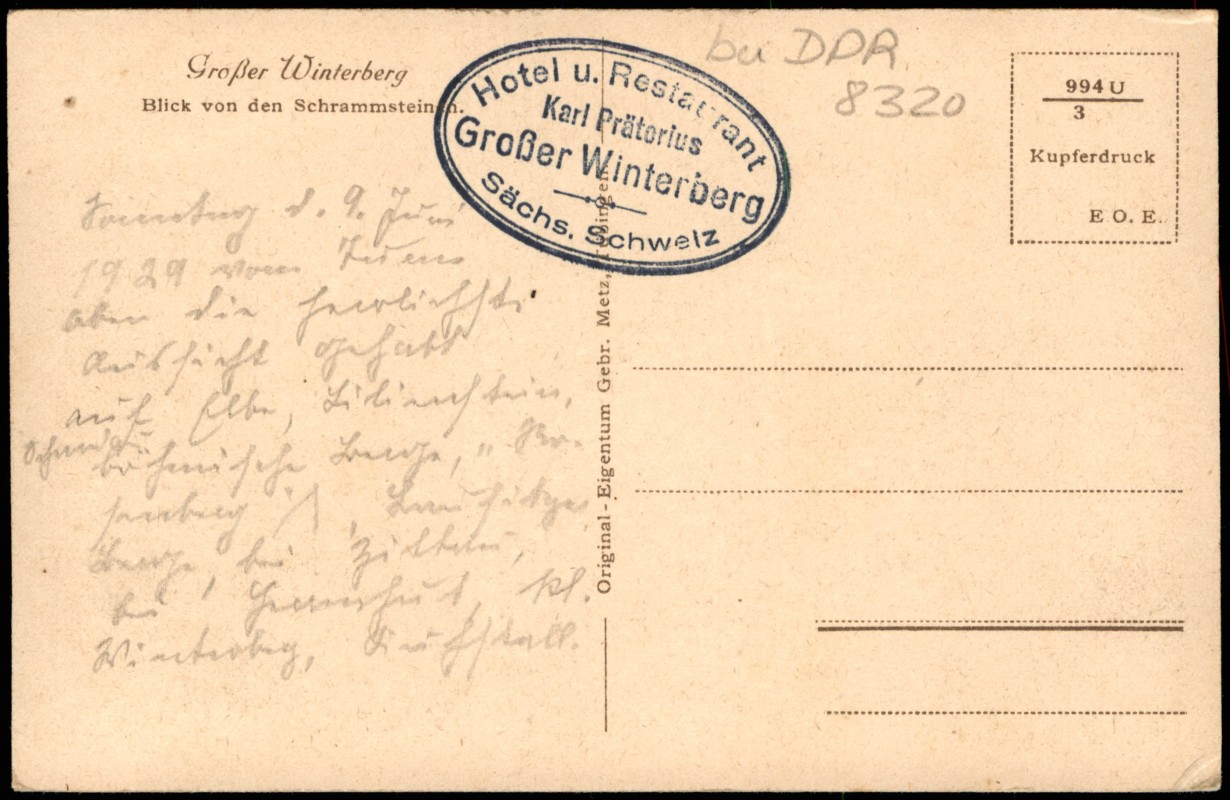 Großer Winterberg
Blick von den Schrammsteinen.
Hotel u. Restaurant
Karl Prätorius
Großer Winterberg
Sächs. Schweiz
bei DDR
8320
994 U
3
Kupferdruck
E. O. E.
Sonntag d. 9. Juni
1929 vom Turm
oben die herrlichste
Aussicht gehabt
auf Elbe, Lilienstein,
Schandau
böhmische Berge, „Ro-
senberg", Lausitzer
Berge, bei Zittau,
bei Herrnhut, kl.
Winterberg, Kuhstall.
Original-Eigentum Gebr. Metz, Tübingen